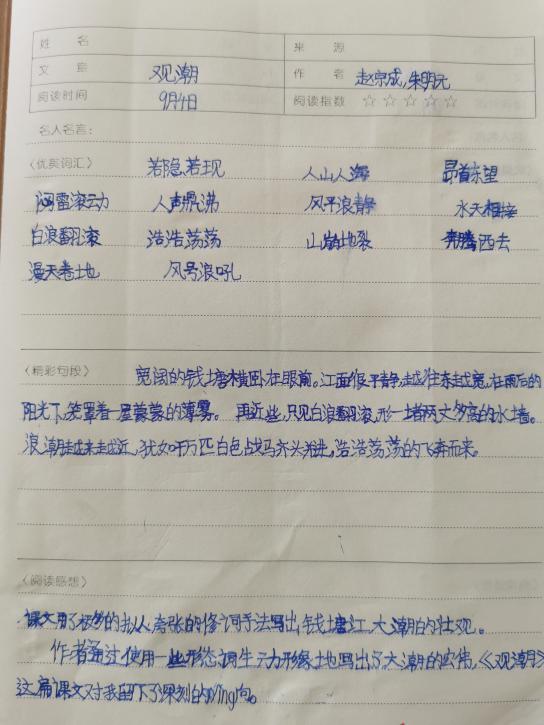 姓 名 来 源
文 章 观潮 作 者 赵宗成,朱明元
阅读时间 9月4日 阅读指数 ☆☆☆☆☆
名人名言:
〈优美词汇〉 若隐若现 人山人海 昂首东望
闷雷滚动 人声鼎沸 风平浪静 水天相接
白浪翻滚 浩浩荡荡 山崩地裂 奔腾西去
漫天卷地 风号浪吼
〈精彩句段〉 宽阔的钱塘横卧在眼前。江面很平静,越往东越宽,在雨后的
阳光下,笼罩着一层蒙蒙的薄雾。 再近些,只见白浪翻滚,形一堵两丈多高的水墙。
浪潮越来越近,犹如千万匹白色战马齐头并进,浩浩荡荡的飞奔而来。
〈阅读感想〉
课文用了很多的拟人,夸张的修词手法写出钱塘江,大潮的壮观。
作者通过使用一些形态词生动形像地写出了大潮的宏伟,《观潮》
这扁课文对我留下了深刻的yìng向。